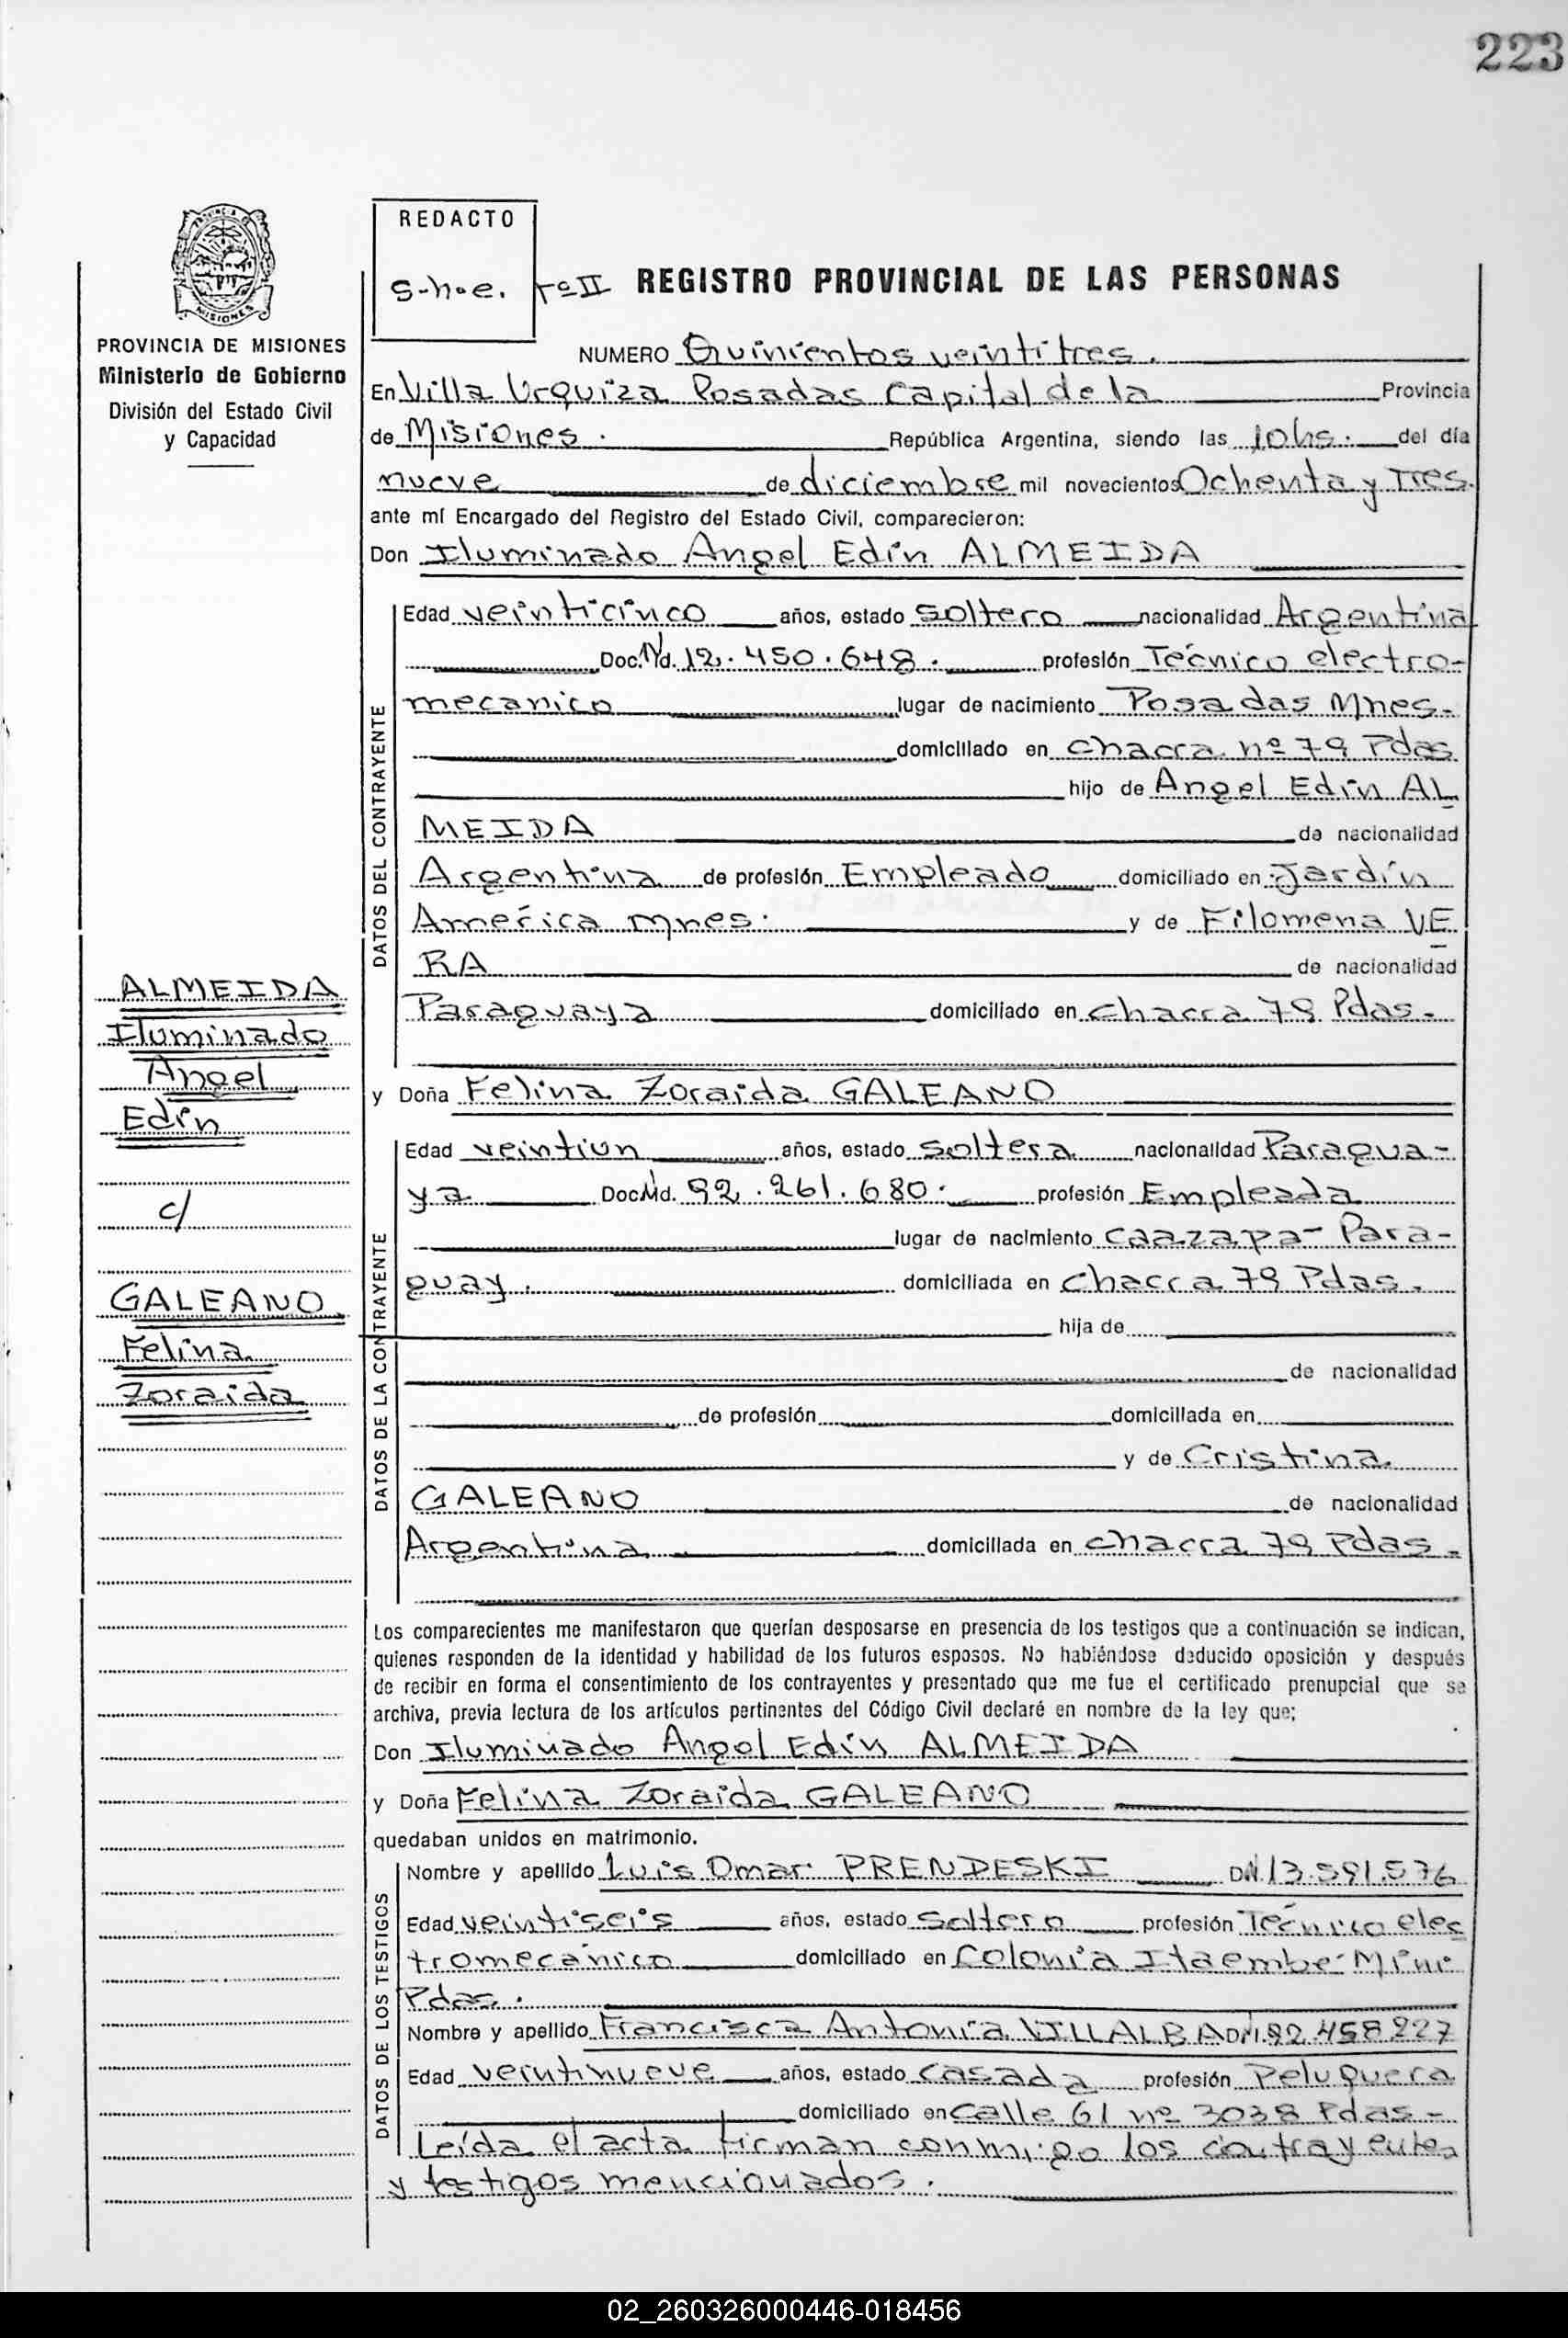 223
REDACTO
S-h-e. Tº II REGISTRO PROVINCIAL DE LAS PERSONAS
PROVINCIA DE MISIONES
Ministerio de Gobierno
División del Estado Civil
y Capacidad
NUMERO Quinientos veintitres.
En Villa Urquiza Posadas Capital de la Provincia
de Misiones. República Argentina, siendo las 10hs. del día
nueve de diciembre mil novecientos Ochenta y Tres.
ante mí Encargado del Registro del Estado Civil, comparecieron:
Don Iluminado Angel Edín ALMEIDA
DATOS DEL CONTRAYENTE
Edad veinticinco años, estado soltero nacionalidad Argentina
Doc. Nd. 12.450.648. profesión Técnico electro-
mecanico lugar de nacimiento Posadas Mnes.
domiciliado en chacra nº 79 Pdas
hijo de Angel Edín AL
MEIDA de nacionalidad
Argentina de profesión Empleado domiciliado en Jardín
América mnes. y de Filomena VE
RA de nacionalidad
Paraguaya domiciliado en chacra 79 Pdas.
ALMEIDA
Iluminado
Angel
Edín
c/
GALEANO
Felina
Zoraida
y Doña Felina Zoraida GALEANO
DATOS DE LA CONTRAYENTE
Edad veintiun años, estado soltera nacionalidad Paragua-
ya Doc. Nd. 92.261.680. profesión Empleada
lugar de nacimiento caazapa- Para-
guay. domiciliada en chacra 79 Pdas.
hija de
de nacionalidad
de profesión domiciliada en
y de Cristina
GALEANO de nacionalidad
Argentina domiciliada en chacra 79 Pdas.
Los comparecientes me manifestaron que querían desposarse en presencia de los testigos que a continuación se indican,
quienes responden de la identidad y habilidad de los futuros esposos. No habiéndose deducido oposición y después
de recibir en forma el consentimiento de los contrayentes y presentado que me fue el certificado prenupcial que se
archiva, previa lectura de los artículos pertinentes del Código Civil declaré en nombre de la ley que;
Don Iluminado Angel Edín ALMEIDA
y Doña Felina Zoraida GALEANO
quedaban unidos en matrimonio.
DATOS DE LOS TESTIGOS
Nombre y apellido Luis Omar PRENDESKI DNI.13.591.576
Edad veintiseis años, estado Soltero profesión Técnico elec
tromecánico domiciliado en Colonia Itaembé Miní
Pdas.
Nombre y apellido Francisca Antonia VILLALBA DNI.92.458227
Edad veintinueve años, estado casada profesión Peluquera
domiciliado en calle 61 nº 3038 Pdas-
Leída el acta firman conmigo los contrayentes
y testigos mencionados.
02_260326000446-018456